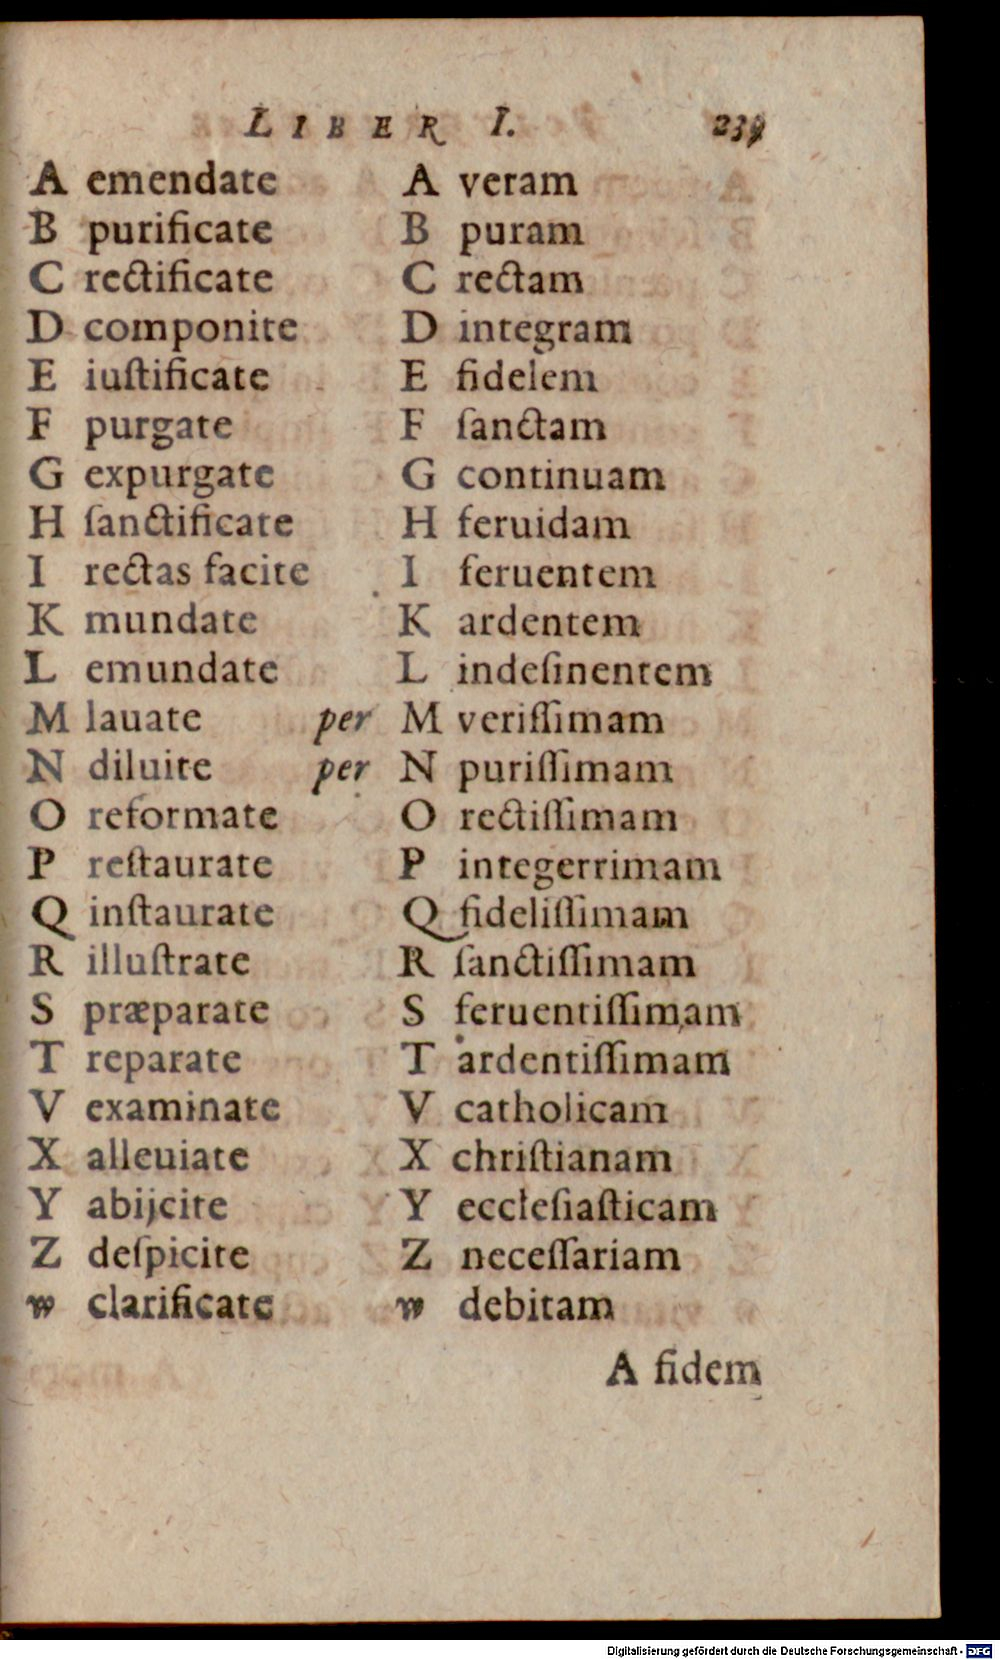 LIBER I. 239
A emendate A veram
B purificate B puram
C rectificate C rectam
D componite D integram
E iuſtificate E fidelem
F purgate F ſanctam
G expurgate G continuam
H ſanctificate H feruidam
I rectas facite I feruentem
K mundate K ardentem
L emundate L indeſinentem
M lauate per M veriſſimam
N diluite per N puriſſimam
O reformate O rectiſſimam
P reſtaurate P integerrimam
Q inſtaurate Q fideliſſimam
R illuſtrate R ſanctiſſimam
S præparate S feruentiſſimam
T reparate T ardentiſſimam
V examinate V catholicam
X alleuiate X chriſtianam
Y abijcite Y eccleſiaſticam
Z deſpicite Z neceſſariam
w clarificate w debitam
A fidem
Digitalisierung gefördert durch die Deutsche Forschungsgemeinschaft - DFG